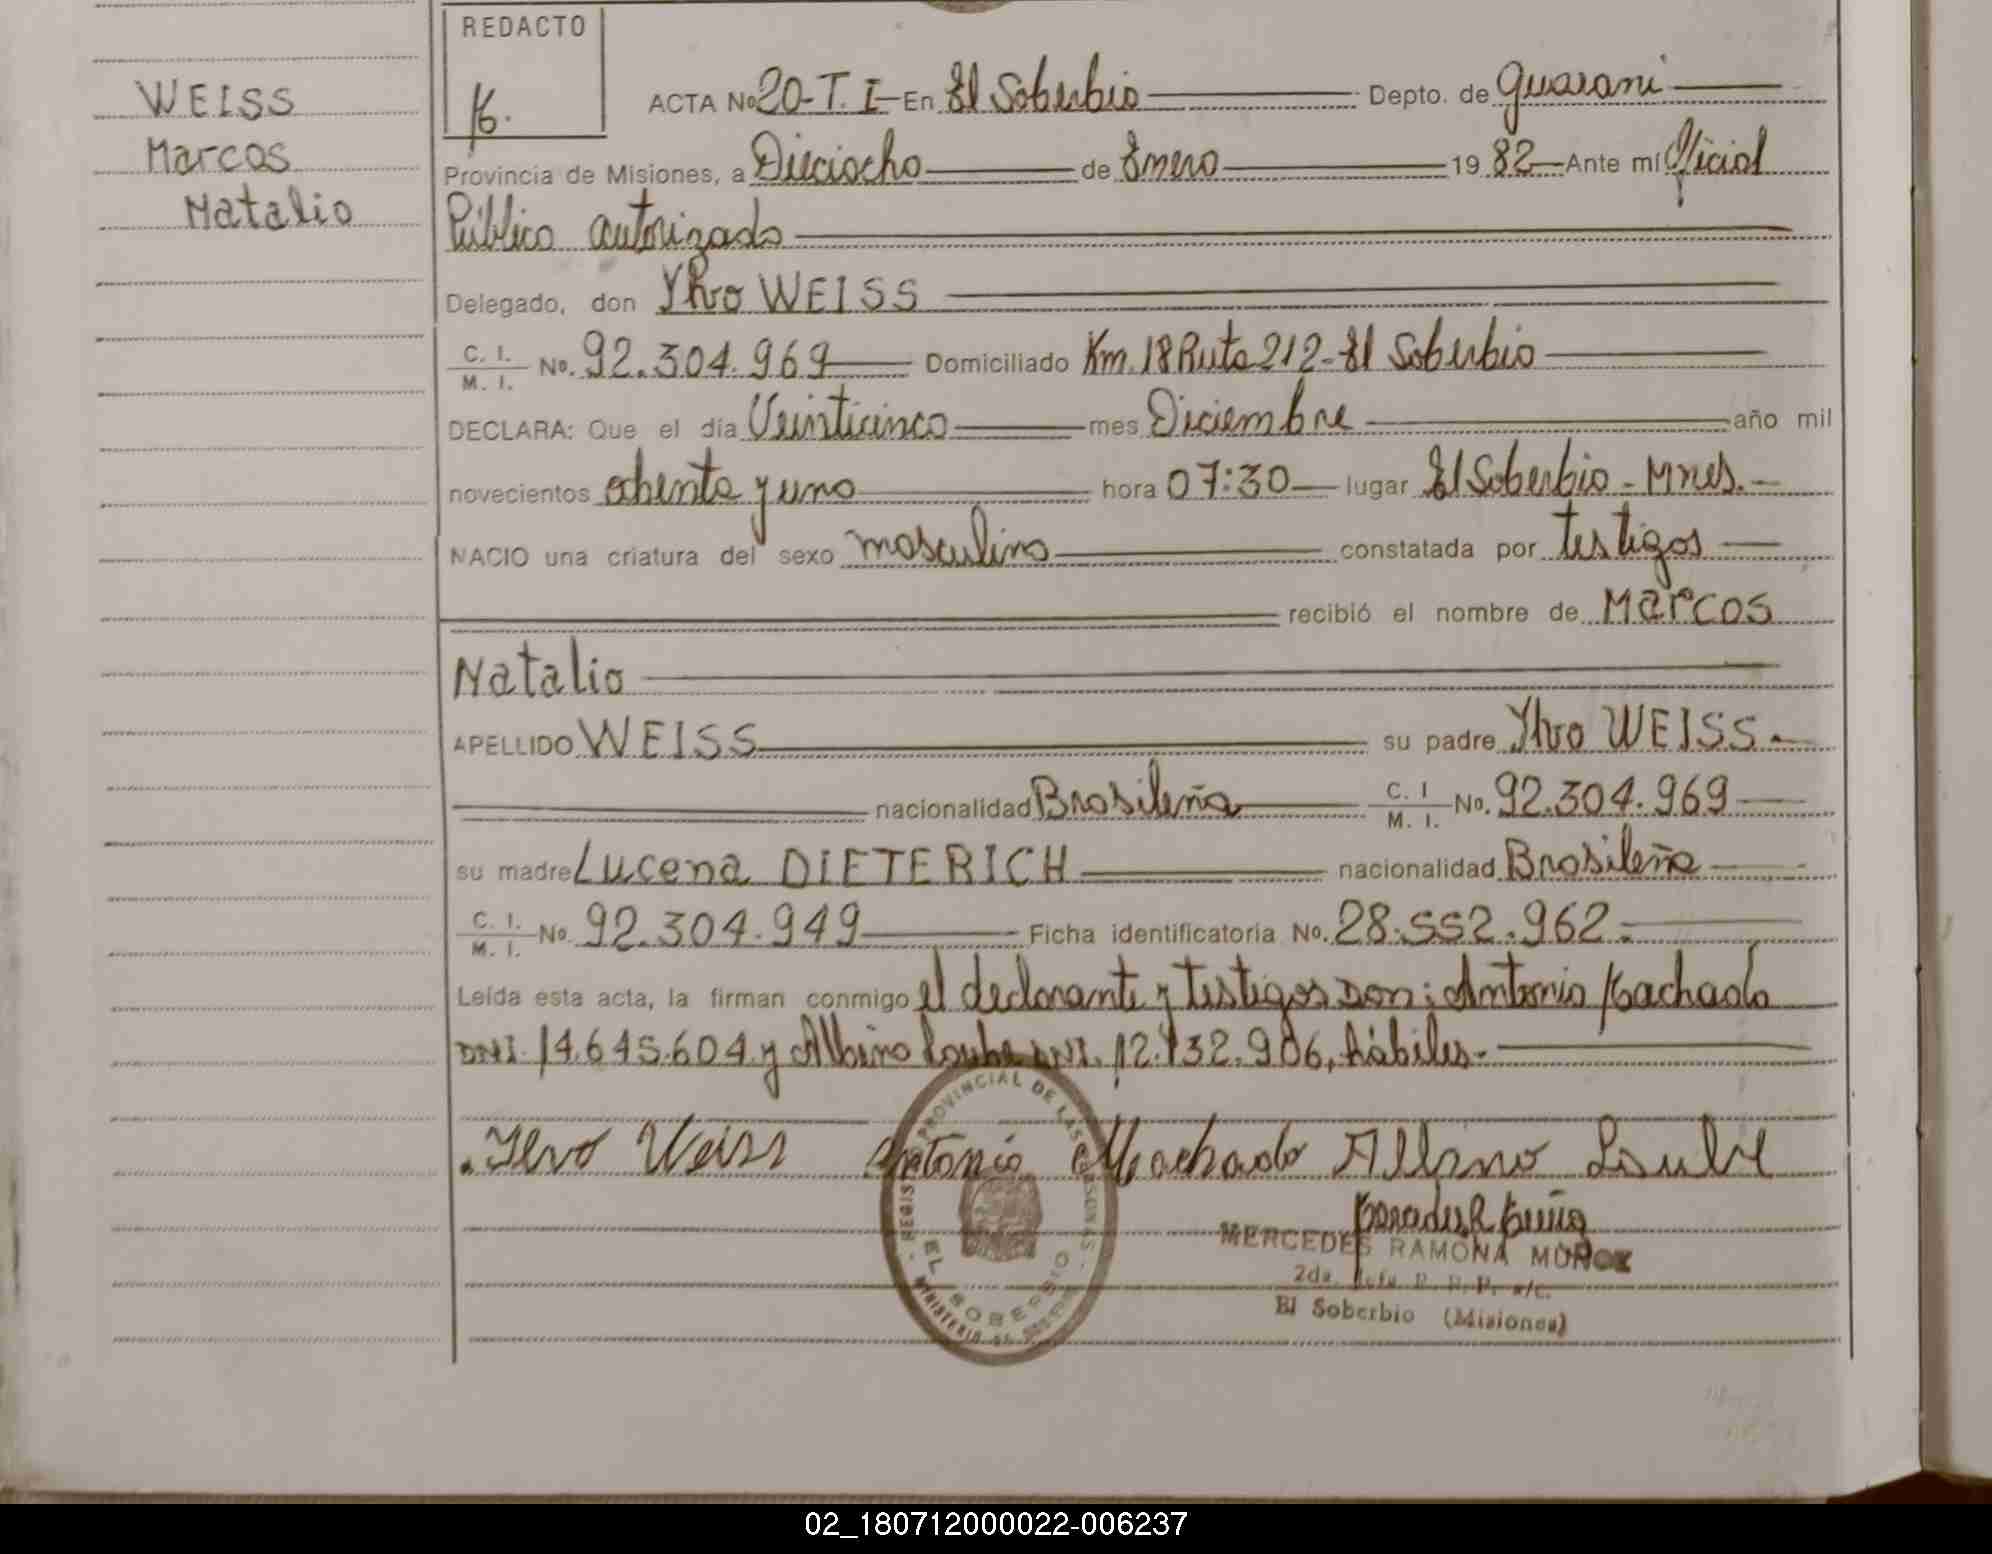 WEISS
Marcos
Natalio
REDACTO
ACTA No 20-T. I En El Soberbio Depto. de Guarani
Provincia de Misiones, a Dieciocho de Enero 19 82 Ante mí Oficial
Público autorizado
Delegado, don Ylvo WEISS
C. I. M. I. No. 92.304.969 Domiciliado Km. 18 Ruta 212 - El Soberbio
DECLARA: Que el día Veinticinco mes Diciembre año mil
novecientos ochenta y uno hora 07:30 lugar El Soberbio - Mnes.
NACIO una criatura del sexo masculino constatada por testigos
recibió el nombre de Marcos
Natalio
APELLIDO WEISS su padre Ylvo WEISS.
nacionalidad Brasileña C. I M. I. No. 92.304.969
su madre Lucena DIETERICH nacionalidad Brasileña
C. I. M. I. No. 92.304.949 Ficha identificatoria No. 28.552.962.
Leída esta acta, la firman conmigo el declarante y testigos Don: Antonio Machado
DNI. 14.645.604 y Albino DNI. 12.132.906, hábiles.
Ilvo Weiss Antonio Machado Albino
MERCEDES RAMONA MUÑOZ
2da. Jefa R. P. P. a/c.
El Soberbio (Misiones)
REGIS PROVINCIAL DE LAS PERSONAS
EL SOBERBIO
MINISTERIO DE
02_180712000022-006237